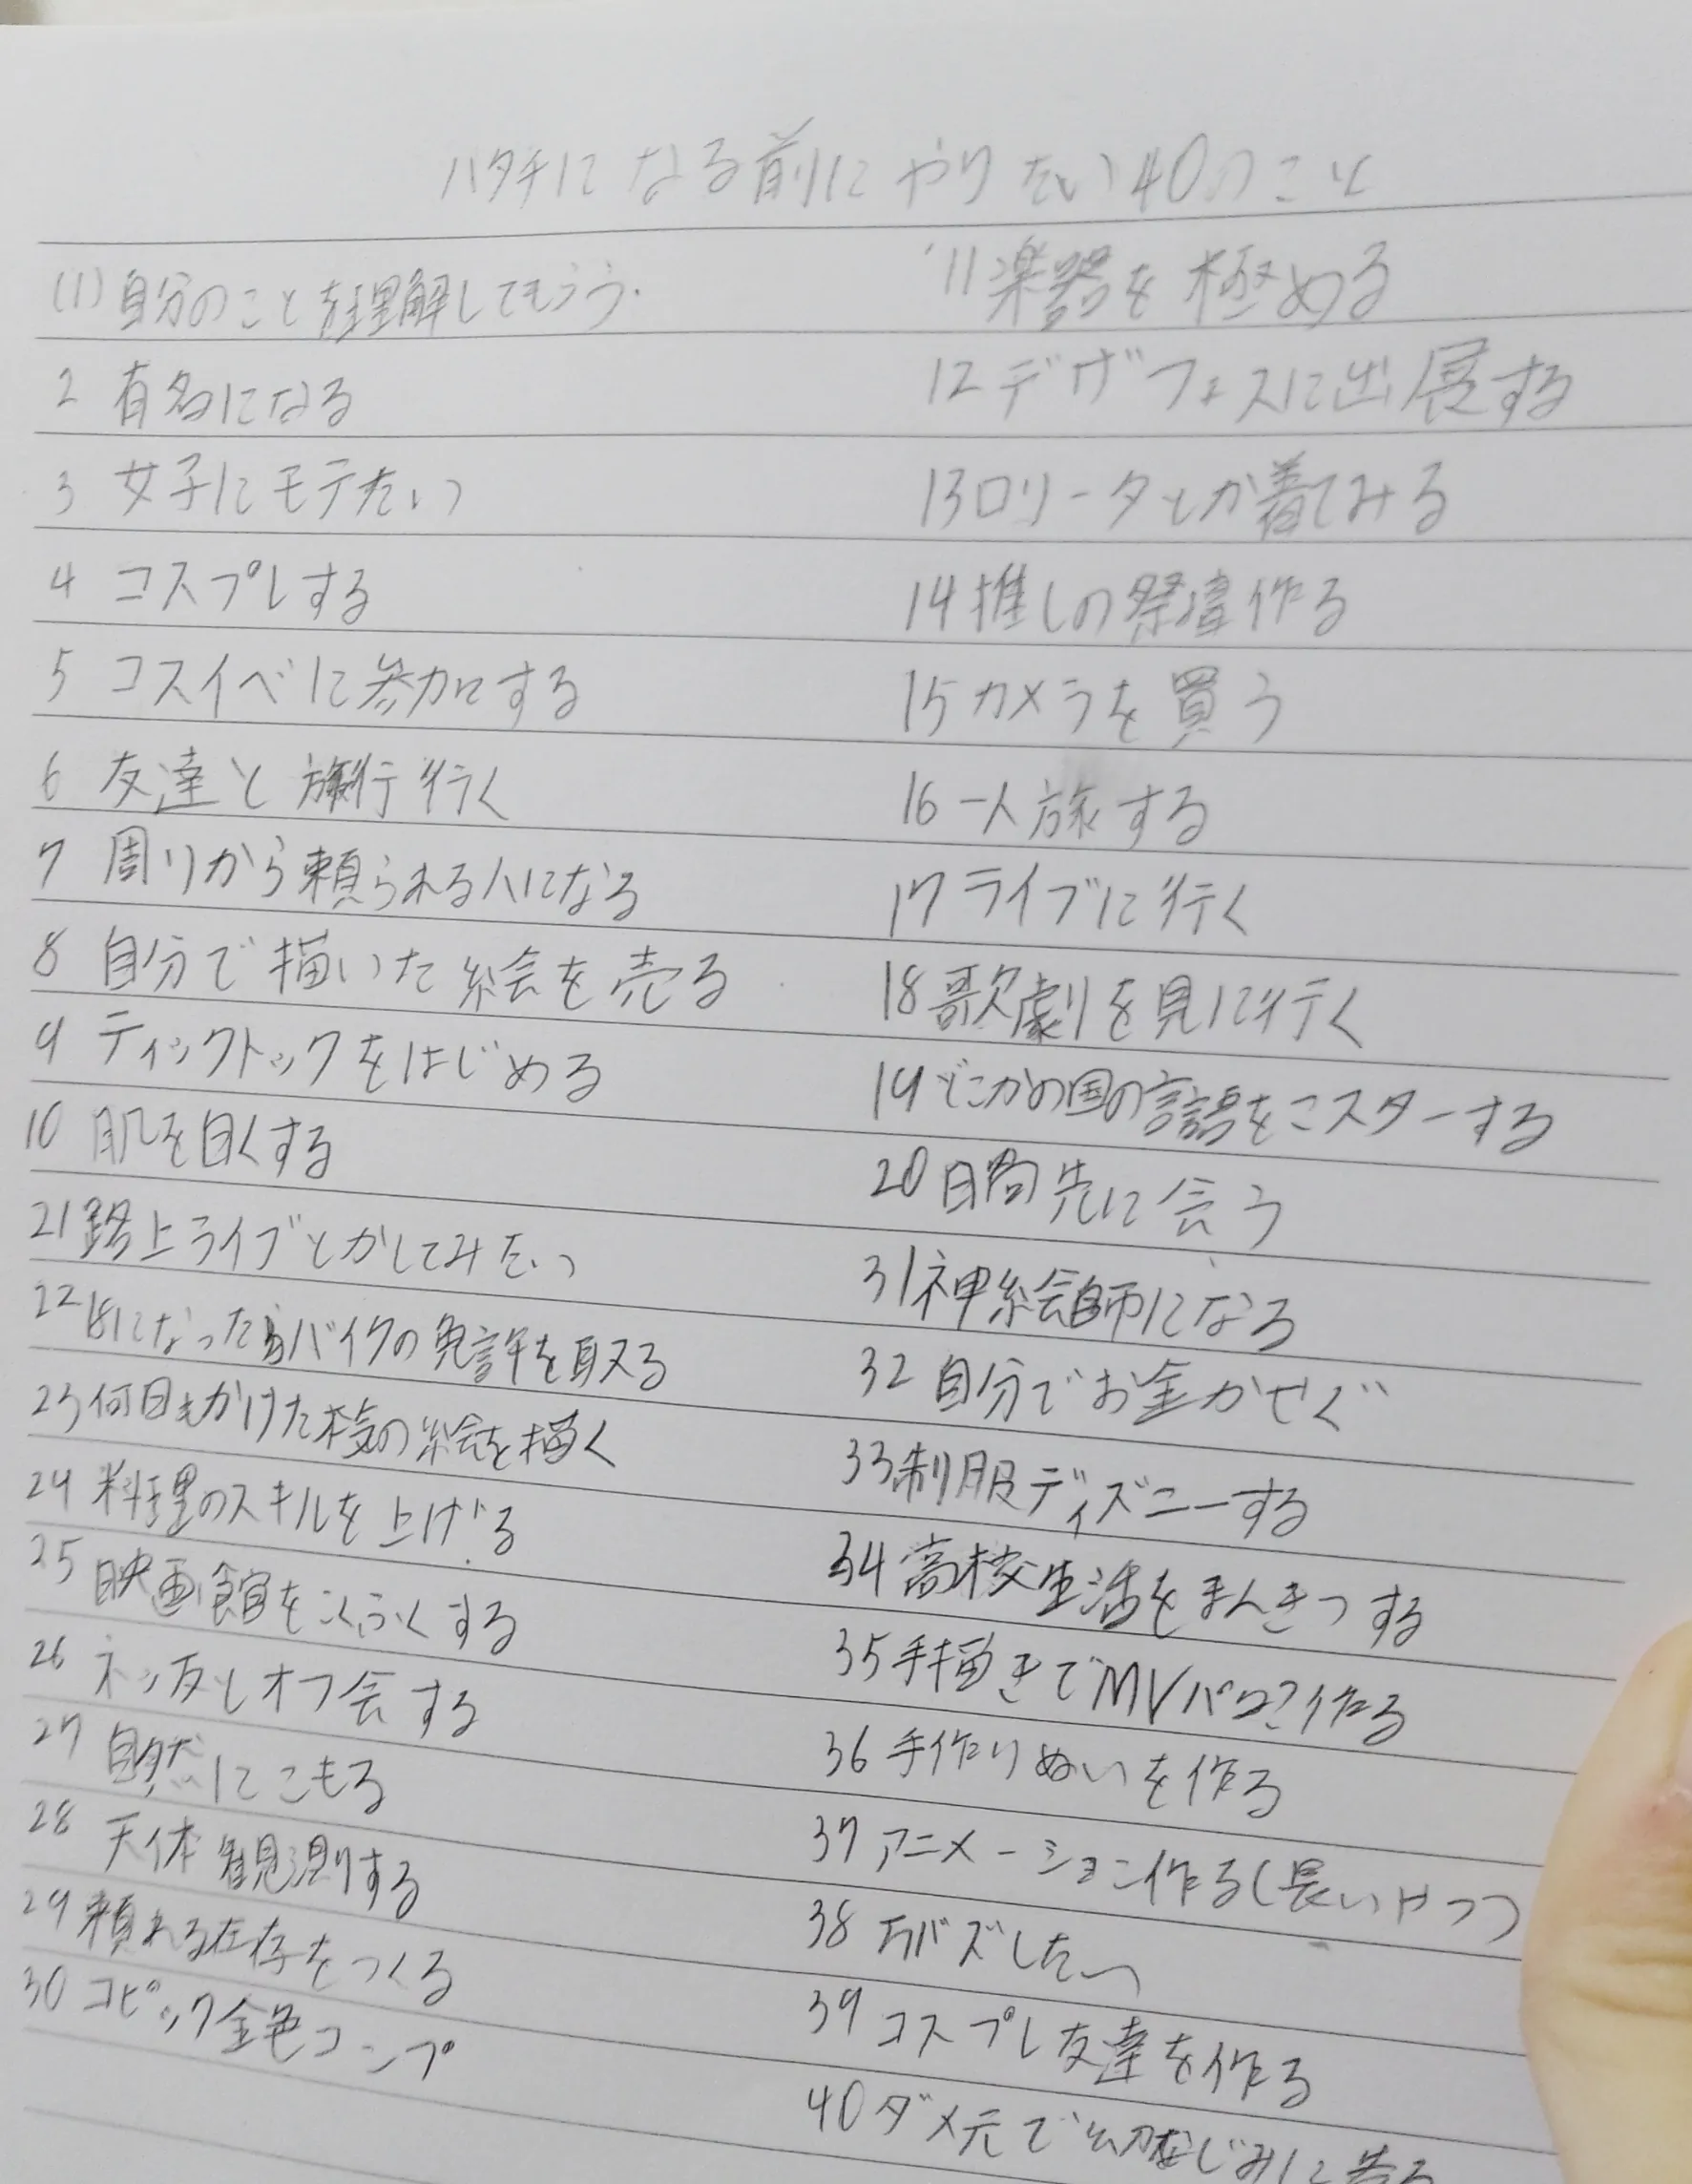 ハタチになる前にやりたい40のこと
(1)自分のことを理解してもらう.
2 有名になる
3 女子にモテたい
4 コスプレする
5 コスイベに参加する
6 友達と旅行行く
7 周りから頼られる人になる
8 自分で描いた絵を売る
9 ティックトックをはじめる
10 肌を白くする
11 楽器を極める
12 デザフェスに出展する
13 ロリータとか着てみる
14 推しの祭壇作る
15 カメラを買う
16 一人旅する
17 ライブに行く
18 歌劇を見に行く
19 どこかの国の言語をマスターする
20 先に会う
21 路上ライブとかしてみたい
22 18になったらバイクの免許を取る
23 何日もかけた本気の絵を描く
24 料理のスキルを上げる
25 映画館をこくふくする
26 ネッ友とオフ会する
27 自然にこもる
28 天体観測する
29 頼れる存在をつくる
30 コピック全色コンプ
31 神絵師になる
32 自分でお金かせぐ
33 制服ディズニーする
34 高校生活をまんきつする
35 手描きでMVパロ?作る
36 手作りぬいを作る
37 アニメーション作る(長いやつ)
38 万バズしたい
39 コスプレ友達を作る
40 ダメ元で幼なじみに